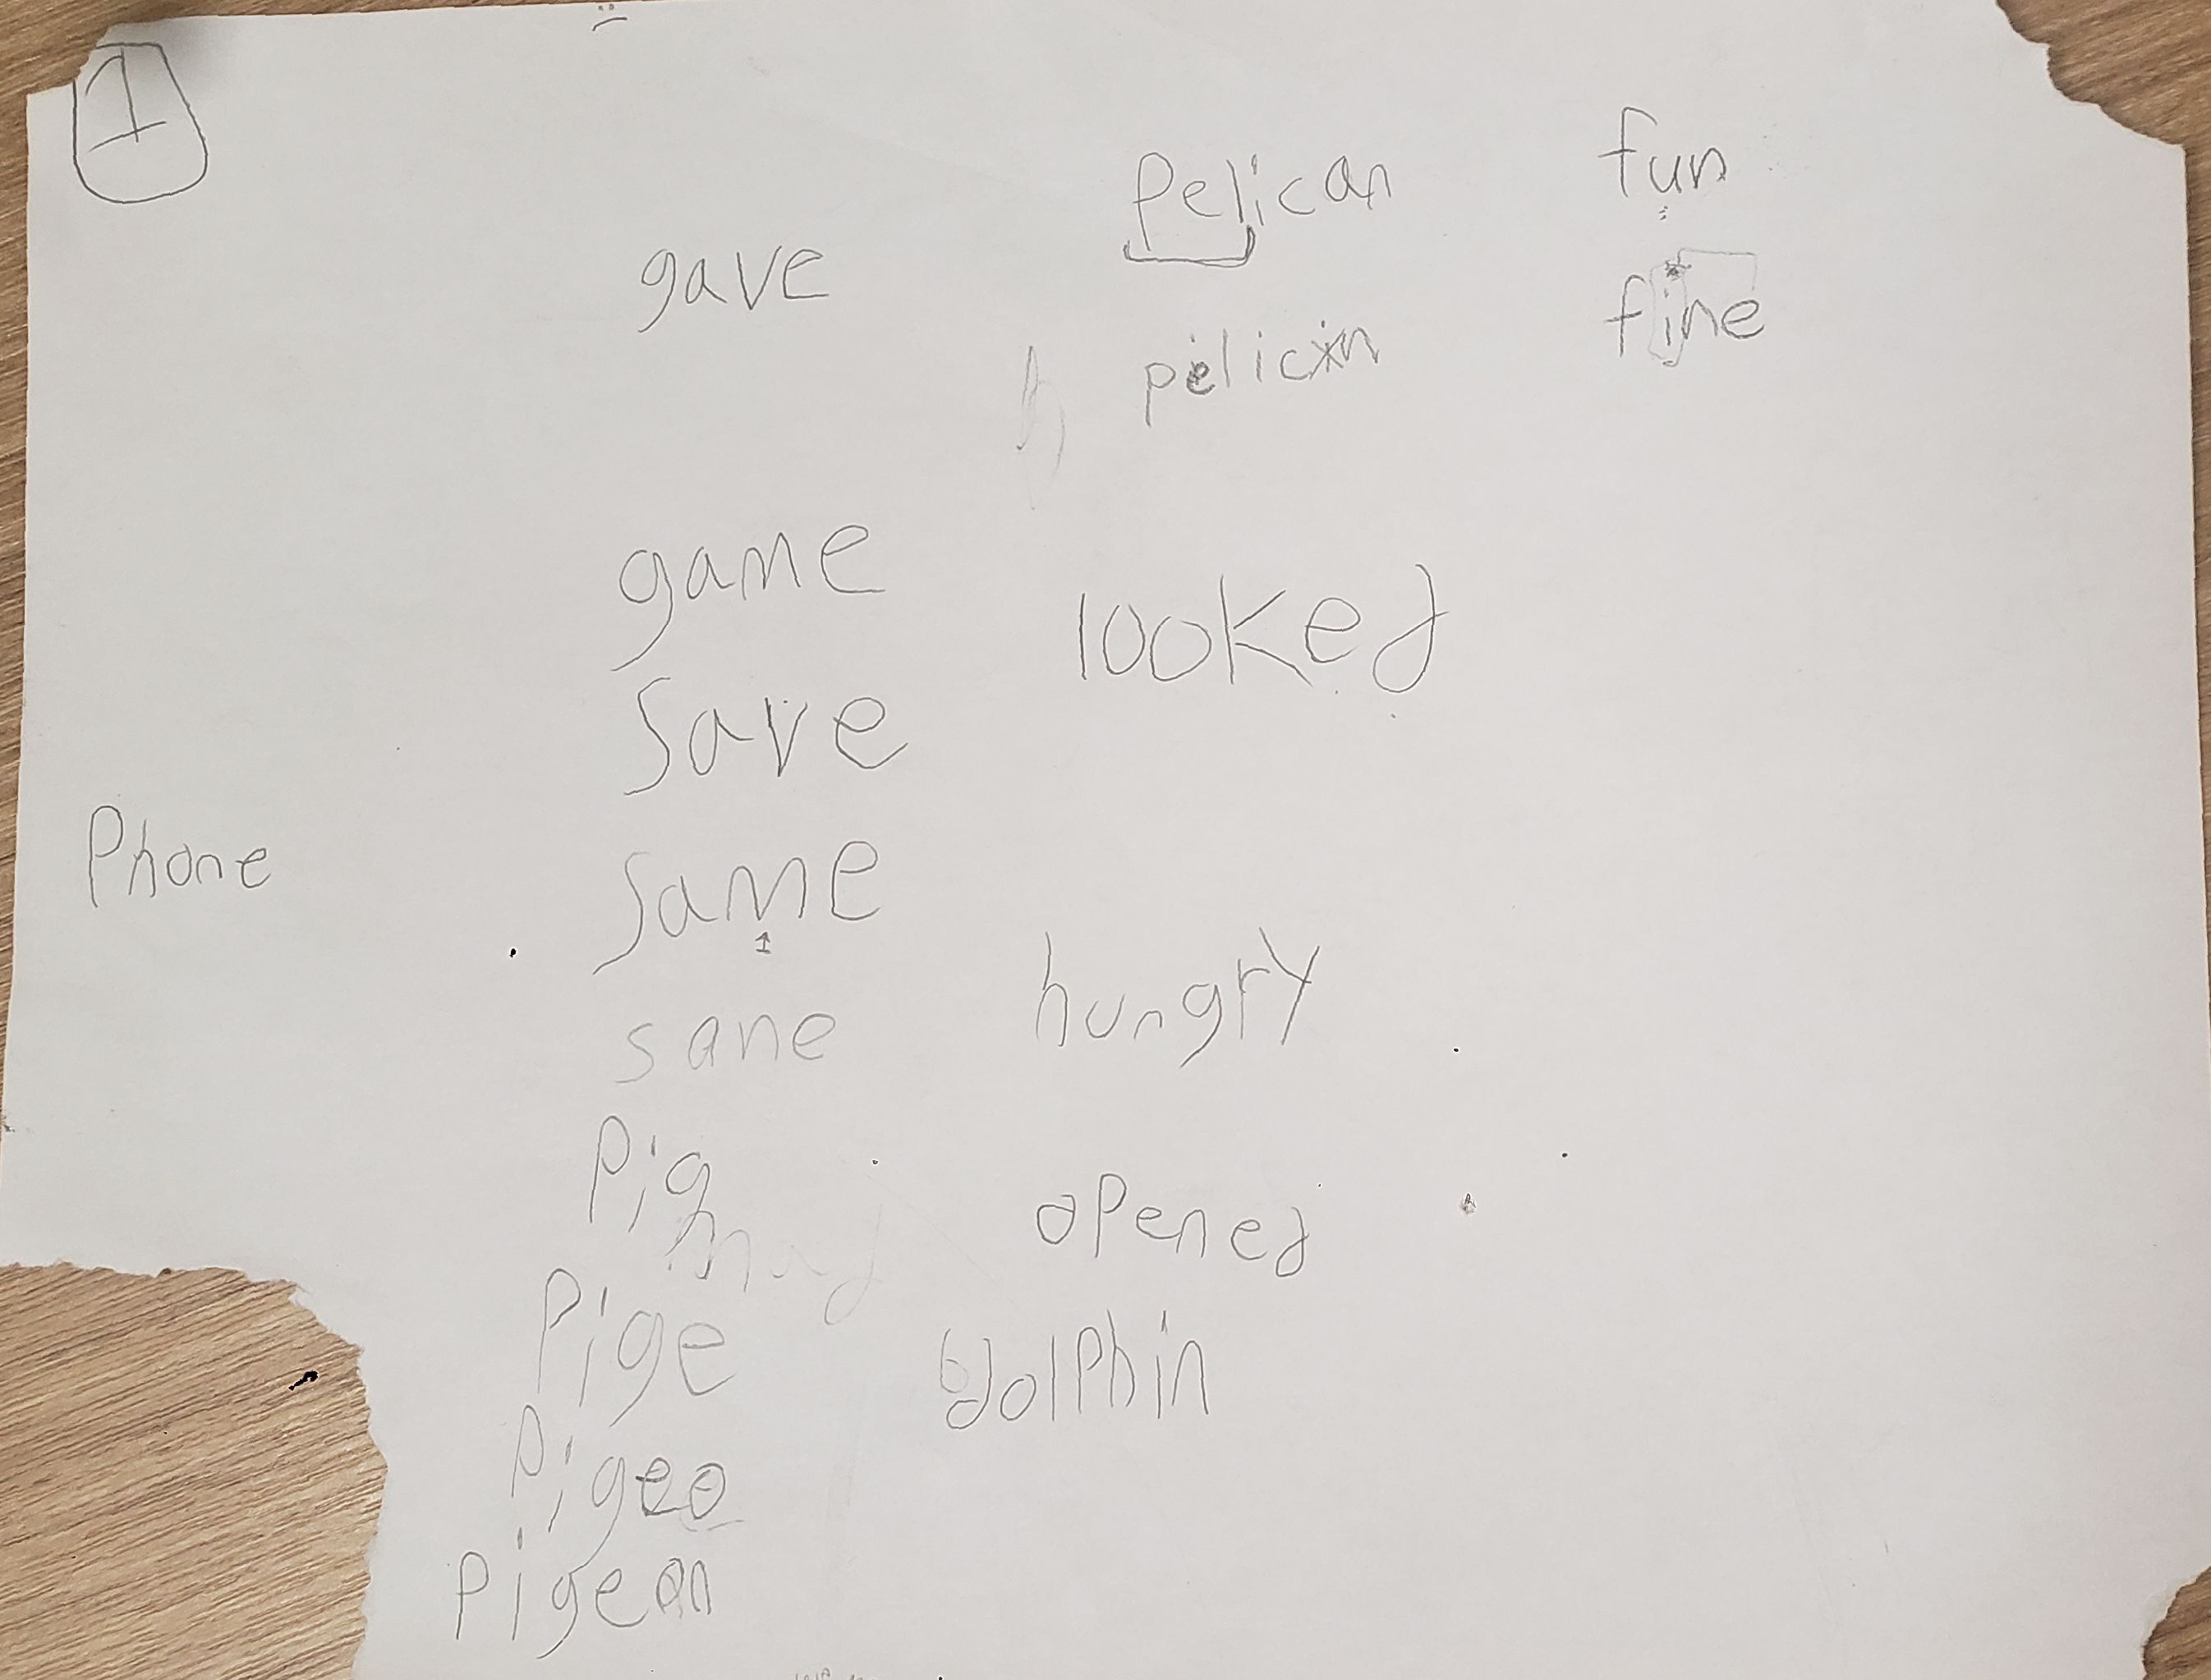 1
Phone
gave
game
save
same
sane
Pig
Pige
Pigeo
Pigeon
Pelican
pelican
looked
hungry
opened
dolphin
fun
fine